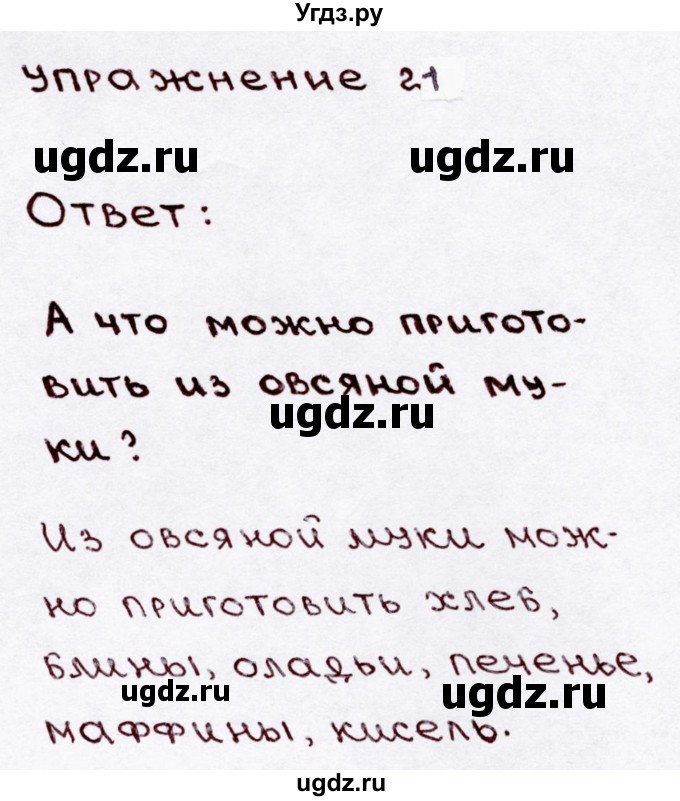 Угдз.ру
Упражнение 21
ugdz.ru ugdz.ru
Ответ:
А что можно пригото-
вить из овсяной му-
ugdz.ru
ки?
Из овсяной муки мож-
но приготовить хлеб,
блины, оладьи, печенье,
ugdz.ru ugdz.ru
маффины, кисель.
ugdz.ru